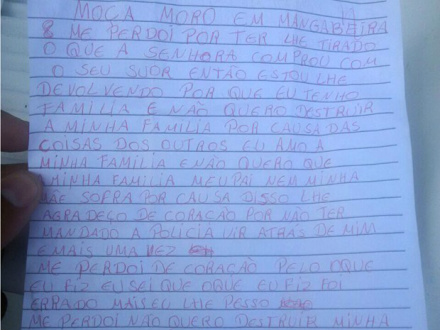 MOÇA MORO EM MANGABEIRA
8 ME PERDOI POR TER LHE TIRADO
O QUE A SENHORA COMPROU COM
O SEU SUOR ENTÃO ESTOU LHE
DEVOLVENDO POR QUE EU TENHO
FAMILIA E NÃO QUERO DESTRUIR
A MINHA FAMILIA POR CAUSA DAS
COISAS DOS OUTROS EU ANO A
MINHA FAMILIA E NÃO QUERO QUE
MINHA FAMILIA MEU PAI NEM MINHA
MÃE SOFRA POR CAUSA DISSO LHE
AGRADEÇO DE CORAÇÃO POR NÃO TER
MANDADO A POLICIA VIR ATRÁS DE MIM
E MAIS UMA VEZ
ME PERDOI DE CORAÇÃO PELO OQUE
EU FIZ EU SEI QUE OQUE EU FIZ FOI
ERRADO MAIS EU LHE PESSO
ME PERDOI NÃO QUERO DESTRUIR MINHA